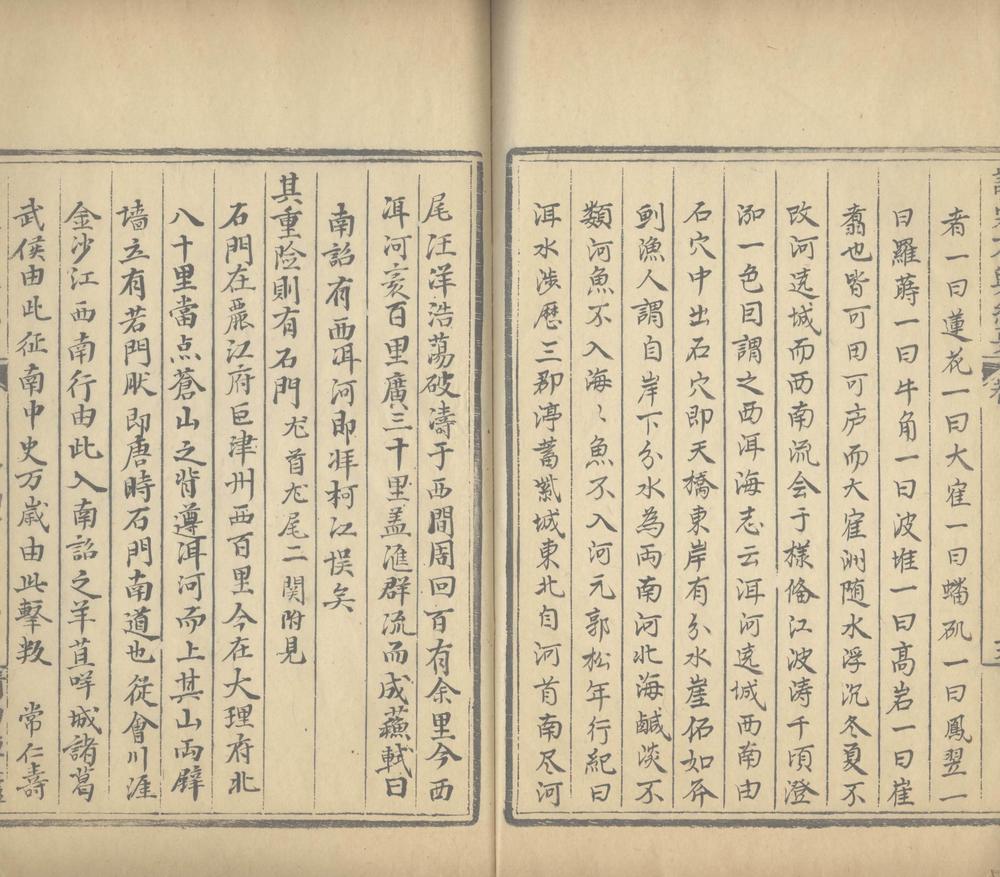 者一曰蓮花一曰大寉一曰蟠矶一曰鳳翌一
曰羅蒔一曰牛角一曰波堆一曰高岩一曰崔
翥也皆可田可庐而大寉洲随水浮沉冬夏不
改河遶城而西南流会于樣俻江波涛千頃澄
泖一色囙謂之西洱海志云洱河遶城西南由
石穴中出石穴即天橋東岸有分水崖俗如斧
劊漁人謂自岸下分水為両南河北海鹹淡不
類河魚不入海〻魚不入河元郭松年行紀曰
洱水涉歷三郡渟蓄紫城東北自河首南尽河
尾汪洋浩蕩破濤于西間周回百有余里今西
洱河亥百里廣三十里盖滙群流而成蘓軾曰
南詔有西洱河即牂柯江悮矣
其重險則有石門 尤首尤尾二関附見
石門在麗江府巨津州西百里今在大理府北
八十里當点蒼山之背遵洱河而上其山両壁
墙立有若門肰即唐時石門南道也従會川涯
金沙江西南行由此入南詔之羊苴咩城諸葛
武侯由此征南中史万歳由此擊叛 常仁壽